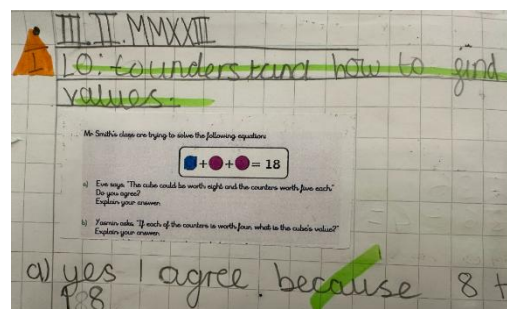 III.II.MMXXIII
1 LO: to understand how to find
values.
Mr Smith's class are trying to solve the following equation:
+ + = 18
a) Eve says, "The cube could be worth eight and the counters worth five each."
Do you agree?
Explain your answer.
b) Yasmin asks, "If each of the counters is worth four, what is the cube's value?"
Explain your answer.
a) yes I agree. because 8 +